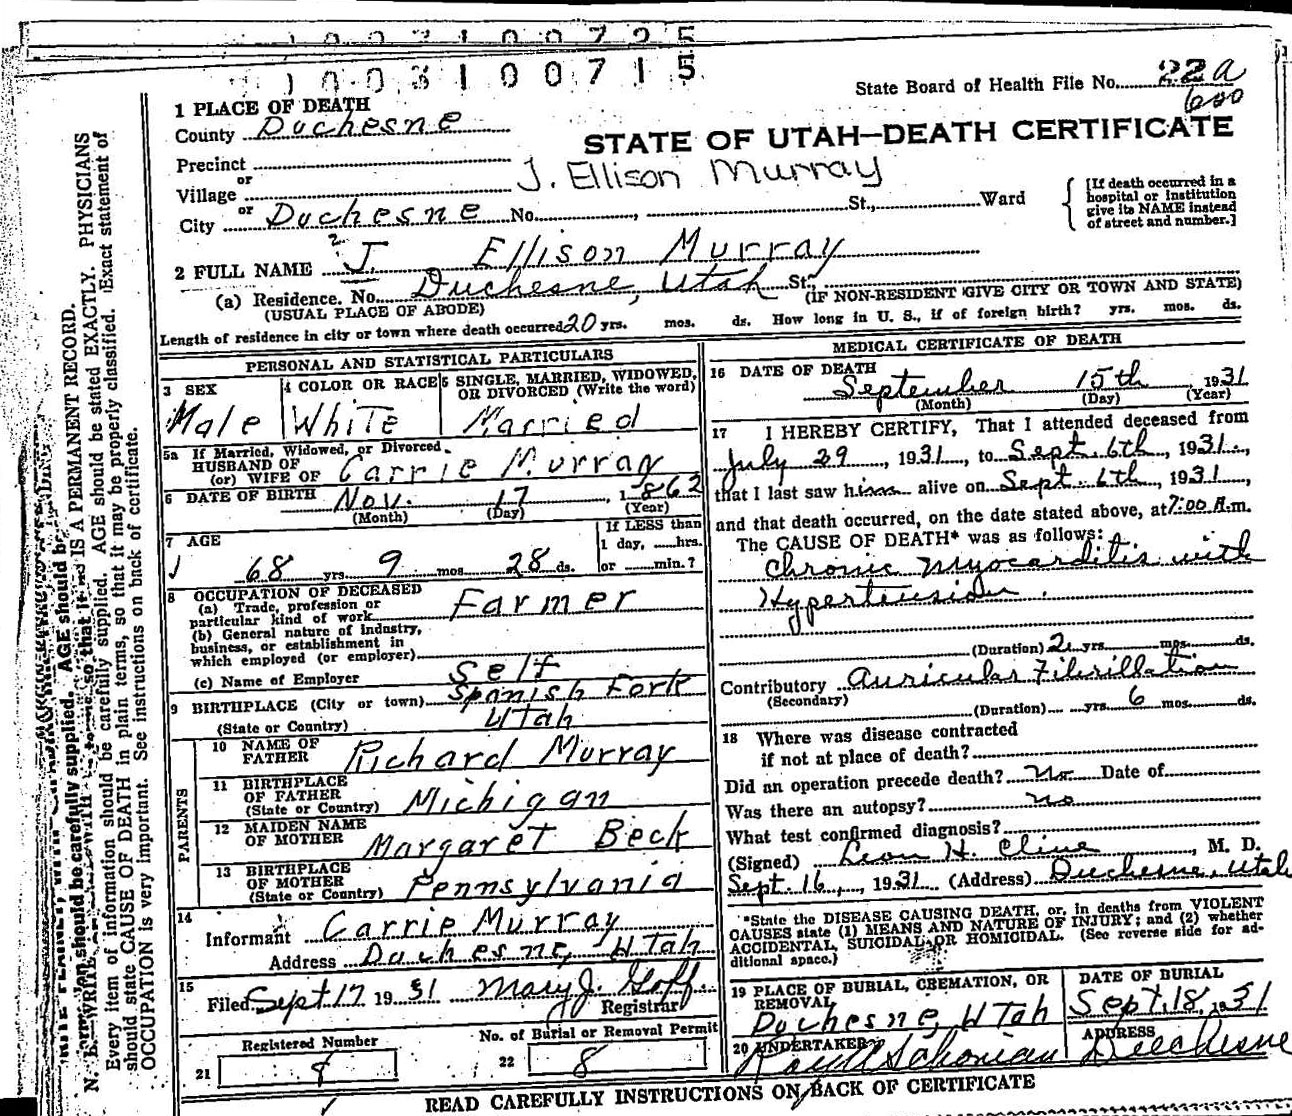 1003100725
1003100715
State Board of Health File No. 22 a
600
1 PLACE OF DEATH
County Duchesne
STATE OF UTAH—DEATH CERTIFICATE
Precinct
or
Village
J. Ellison Murray
or
City Duchesne No. , St., Ward
[If death occurred in a
hospital or institution
give its NAME instead
of street and number.]
2 FULL NAME J. Ellison Murray
(a) Residence. No. Duchesne, Utah St.,
(USUAL PLACE OF ABODE)
(IF NON-RESIDENT GIVE CITY OR TOWN AND STATE)
Length of residence in city or town where death occurred 20 yrs. mos. ds. How long in U. S., if of foreign birth? yrs. mos. ds.
PERSONAL AND STATISTICAL PARTICULARS
3 SEX
Male
4 COLOR OR RACE
White
5 SINGLE, MARRIED, WIDOWED,
OR DIVORCED (Write the word)
Married
5a If Married, Widowed, or Divorced
HUSBAND OF
(or) WIFE OF Carrie Murray
6 DATE OF BIRTH Nov. 17, 1862
(Month) (Day) (Year)
7 AGE
68 yrs. 9 mos. 28 ds.
If LESS than
1 day, hrs.
or min.?
8 OCCUPATION OF DECEASED
(a) Trade, profession or
particular kind of work Farmer
(b) General nature of industry,
business, or establishment in
which employed (or employer)
(c) Name of Employer Self
9 BIRTHPLACE (City or town) Spanish Fork
(State or Country) Utah
PARENTS
10 NAME OF
FATHER Richard Murray
11 BIRTHPLACE
OF FATHER
(State or Country) Michigan
12 MAIDEN NAME
OF MOTHER Margaret Beck
13 BIRTHPLACE
OF MOTHER
(State or Country) Pennsylvania
14
Informant Carrie Murray
Address Duchesne, Utah
15
Filed Sept. 17 1931 Mary J. Goff
Registrar
Registered Number
21
No. of Burial or Removal Permit
22 8
MEDICAL CERTIFICATE OF DEATH
16 DATE OF DEATH
September 15th, 1931
(Month) (Day) (Year)
17 I HEREBY CERTIFY, That I attended deceased from
July 29, 1931, to Sept. 6th, 1931,
that I last saw him alive on Sept. 6th, 1931,
and that death occurred, on the date stated above, at 7:00 A.m.
The CAUSE OF DEATH* was as follows:
Chronic myocarditis with
Hypertension.
(Duration) 2 yrs. mos. ds.
Contributory Auricular Fibrillation
(Secondary)
(Duration) yrs. 6 mos. ds.
18 Where was disease contracted
if not at place of death?
Did an operation precede death? No Date of
Was there an autopsy? no
What test confirmed diagnosis?
(Signed) Leon H. Cline, M. D.
Sept. 16, 1931 (Address) Duchesne, Utah
*State the DISEASE CAUSING DEATH, or, in deaths from VIOLENT
CAUSES state (1) MEANS AND NATURE OF INJURY; and (2) whether
ACCIDENTAL, SUICIDAL OR HOMICIDAL. (See reverse side for ad-
ditional space.)
19 PLACE OF BURIAL, CREMATION, OR
REMOVAL
Duchesne, Utah
DATE OF BURIAL
Sept. 18, 1931
20 UNDERTAKER
ADDRESS
Duchesne
READ CAREFULLY INSTRUCTIONS ON BACK OF CERTIFICATE
IS A PERMANENT RECORD.
Every item of information should be carefully supplied. AGE should be stated EXACTLY. PHYSICIANS
should state CAUSE OF DEATH in plain terms, so that it may be properly classified. Exact statement of
OCCUPATION is very important. See instructions on back of certificate.